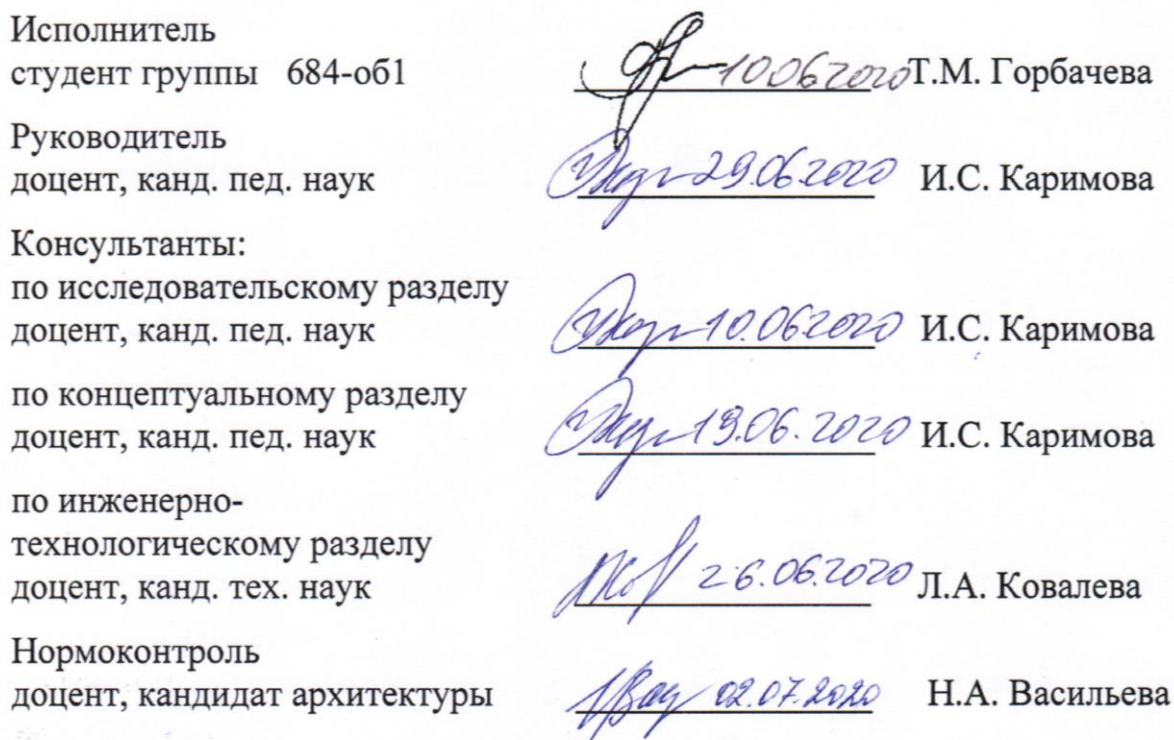 Исполнитель
студент группы 684-об1 10.06.2020 Т.М. Горбачева
Руководитель
доцент, канд. пед. наук 29.06.2020 И.С. Каримова
Консультанты:
по исследовательскому разделу
доцент, канд. пед. наук 10.06.2020 И.С. Каримова
по концептуальному разделу
доцент, канд. пед. наук 19.06.2020 И.С. Каримова
по инженерно-
технологическому разделу
доцент, канд. тех. наук 26.06.2020 Л.А. Ковалева
Нормоконтроль
доцент, кандидат архитектуры 02.07.2020 Н.А. Васильева